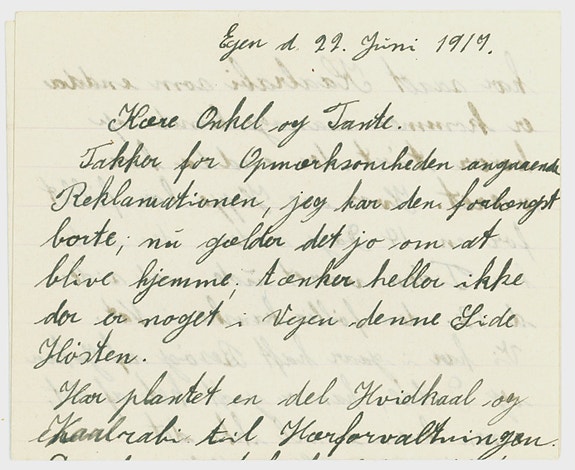 Egen d. 22. Juni 1917.
Kære Onkel og Tante.
Takker for Opmærksomheden angaaende
Reklamationen, jeg har den forlængst
borte; nu gælder det jo om at
blive hjemme, tænker heller ikke
der er noget i Vejen denne Side
Høsten.
Har plantet en del Hvidkaal og
Kaalrabi til Hærforvaltningen.